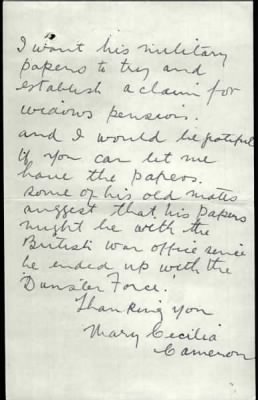 I want his military
papers to try and
establish a claim for
widows pension.
and I would be grateful
if you can let me
have the papers.
some of his old mates
suggest that his papers
might be with the
British War office since
he ended up with the
'Dunster Force.'
Thanking you
Mary Cecilia
Cameron